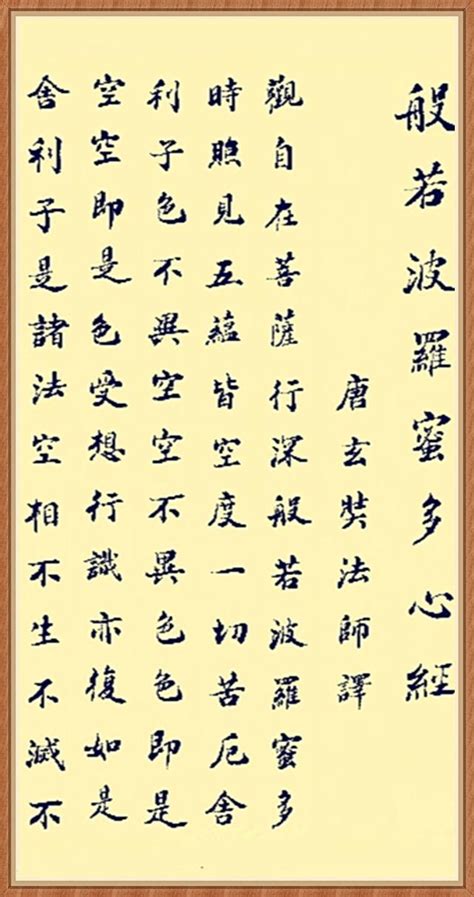 般若波羅蜜多心經
唐玄奘法師譯
觀自在菩薩行深般若波羅蜜多
時照見五蘊皆空度一切苦厄舍
利子色不異空空不異色色即是
空空即是色受想行識亦復如是
舍利子是諸法空相不生不滅不